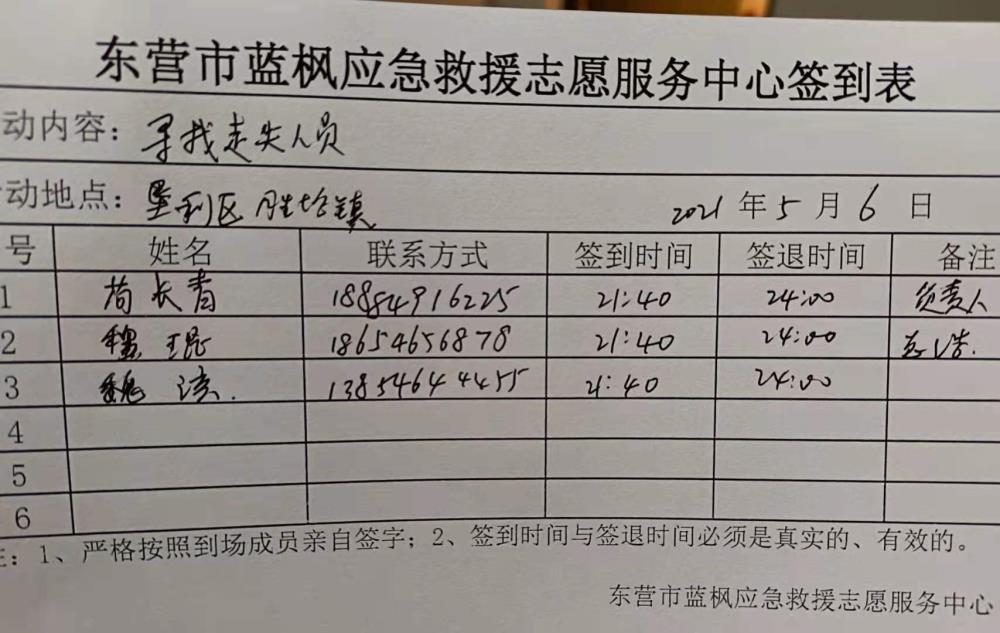 东营市蓝枫应急救援志愿服务中心签到表
动内容：寻找走失人员
动地点：垦利区胜坨镇 2021年5月6日
号 姓名 联系方式 签到时间 签退时间 备注
1 荀长青 18884916225 21:40 24:00 负责人
2 魏琨 18654656878 21:40 24:00
3 魏 13854644455 21:40 24:00
4
5
6
注：1、严格按照到场成员亲自签字；2、签到时间与签退时间必须是真实的、有效的。
东营市蓝枫应急救援志愿服务中心